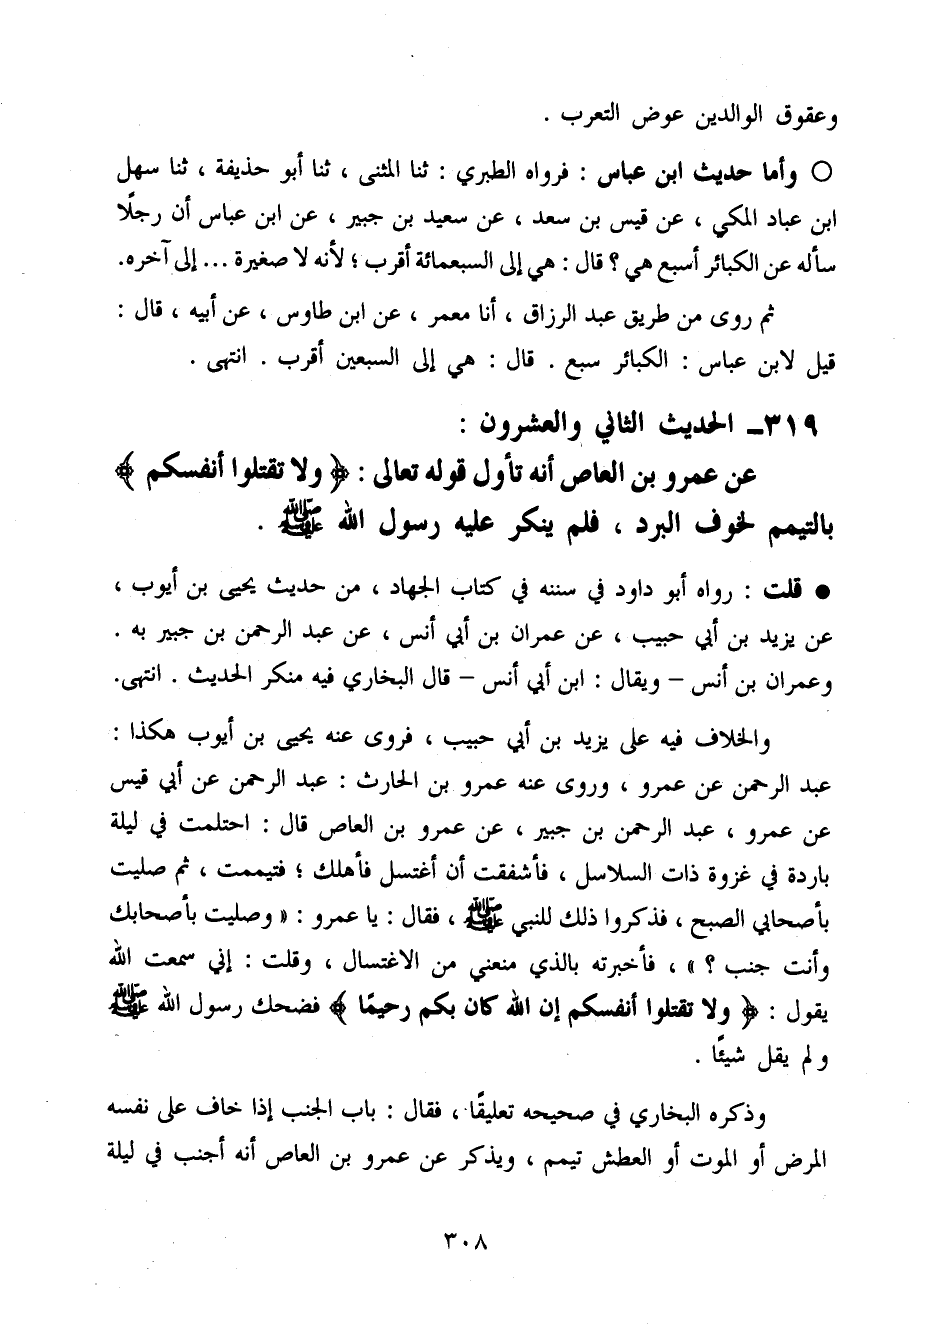 وعقوق الوالدين عوض التعرب .
○ وأما حديث ابن عباس : فرواه الطبري : ثنا المثنى ، ثنا أبو حذيفة ، ثنا سهل
ابن عباد المكي ، عن قيس بن سعد ، عن سعيد بن جبير ، عن ابن عباس أن رجلًا
سأله عن الكبائر أسبع هي ؟ قال : هي إلى السبعمائة أقرب ؛ لأنه لا صغيرة ... إلى آخره.
ثم روى من طريق عبد الرزاق ، أنا معمر ، عن ابن طاوس ، عن أبيه ، قال :
قيل لابن عباس : الكبائر سبع . قال : هي إلى السبعين أقرب . انتهى .
٣١٩ـ الحديث الثاني والعشرون :
عن عمرو بن العاص أنه تأول قوله تعالى : ﴿ ولا تقتلوا أنفسكم ﴾
بالتيمم لخوف البرد ، فلم ينكر عليه رسول الله ﷺ .
● قلت : رواه أبو داود في سننه في كتاب الجهاد ، من حديث يحيى بن أيوب ،
عن يزيد بن أبي حبيب ، عن عمران بن أبي أنس ، عن عبد الرحمن بن جبير به .
وعمران بن أنس – ويقال : ابن أبي أنس – قال البخاري فيه منكر الحديث . انتهى.
والخلاف فيه على يزيد بن أبي حبيب ، فروى عنه يحيى بن أيوب هكذا :
عبد الرحمن عن عمرو ، وروى عنه عمرو بن الحارث : عبد الرحمن عن أبي قيس
عن عمرو ، عبد الرحمن بن جبير ، عن عمرو بن العاص قال : احتلمت في ليلة
باردة في غزوة ذات السلاسل ، فأشفقت أن أغتسل فأهلك ؛ فتيممت ، ثم صليت
بأصحابي الصبح ، فذكروا ذلك للنبي ﷺ ، فقال : يا عمرو : « وصليت بأصحابك
وأنت جنب ؟ » ، فأخبرته بالذي منعني من الاغتسال ، وقلت : إني سمعت الله
يقول : ﴿ ولا تقتلوا أنفسكم إن الله كان بكم رحيمًا ﴾ فضحك رسول الله ﷺ
و لم يقل شيئًا .
وذكره البخاري في صحيحه تعليقًا ، فقال : باب الجنب إذا خاف على نفسه
المرض أو الموت أو العطش تيمم ، ويذكر عن عمرو بن العاص أنه أجنب في ليلة
٣٠٨